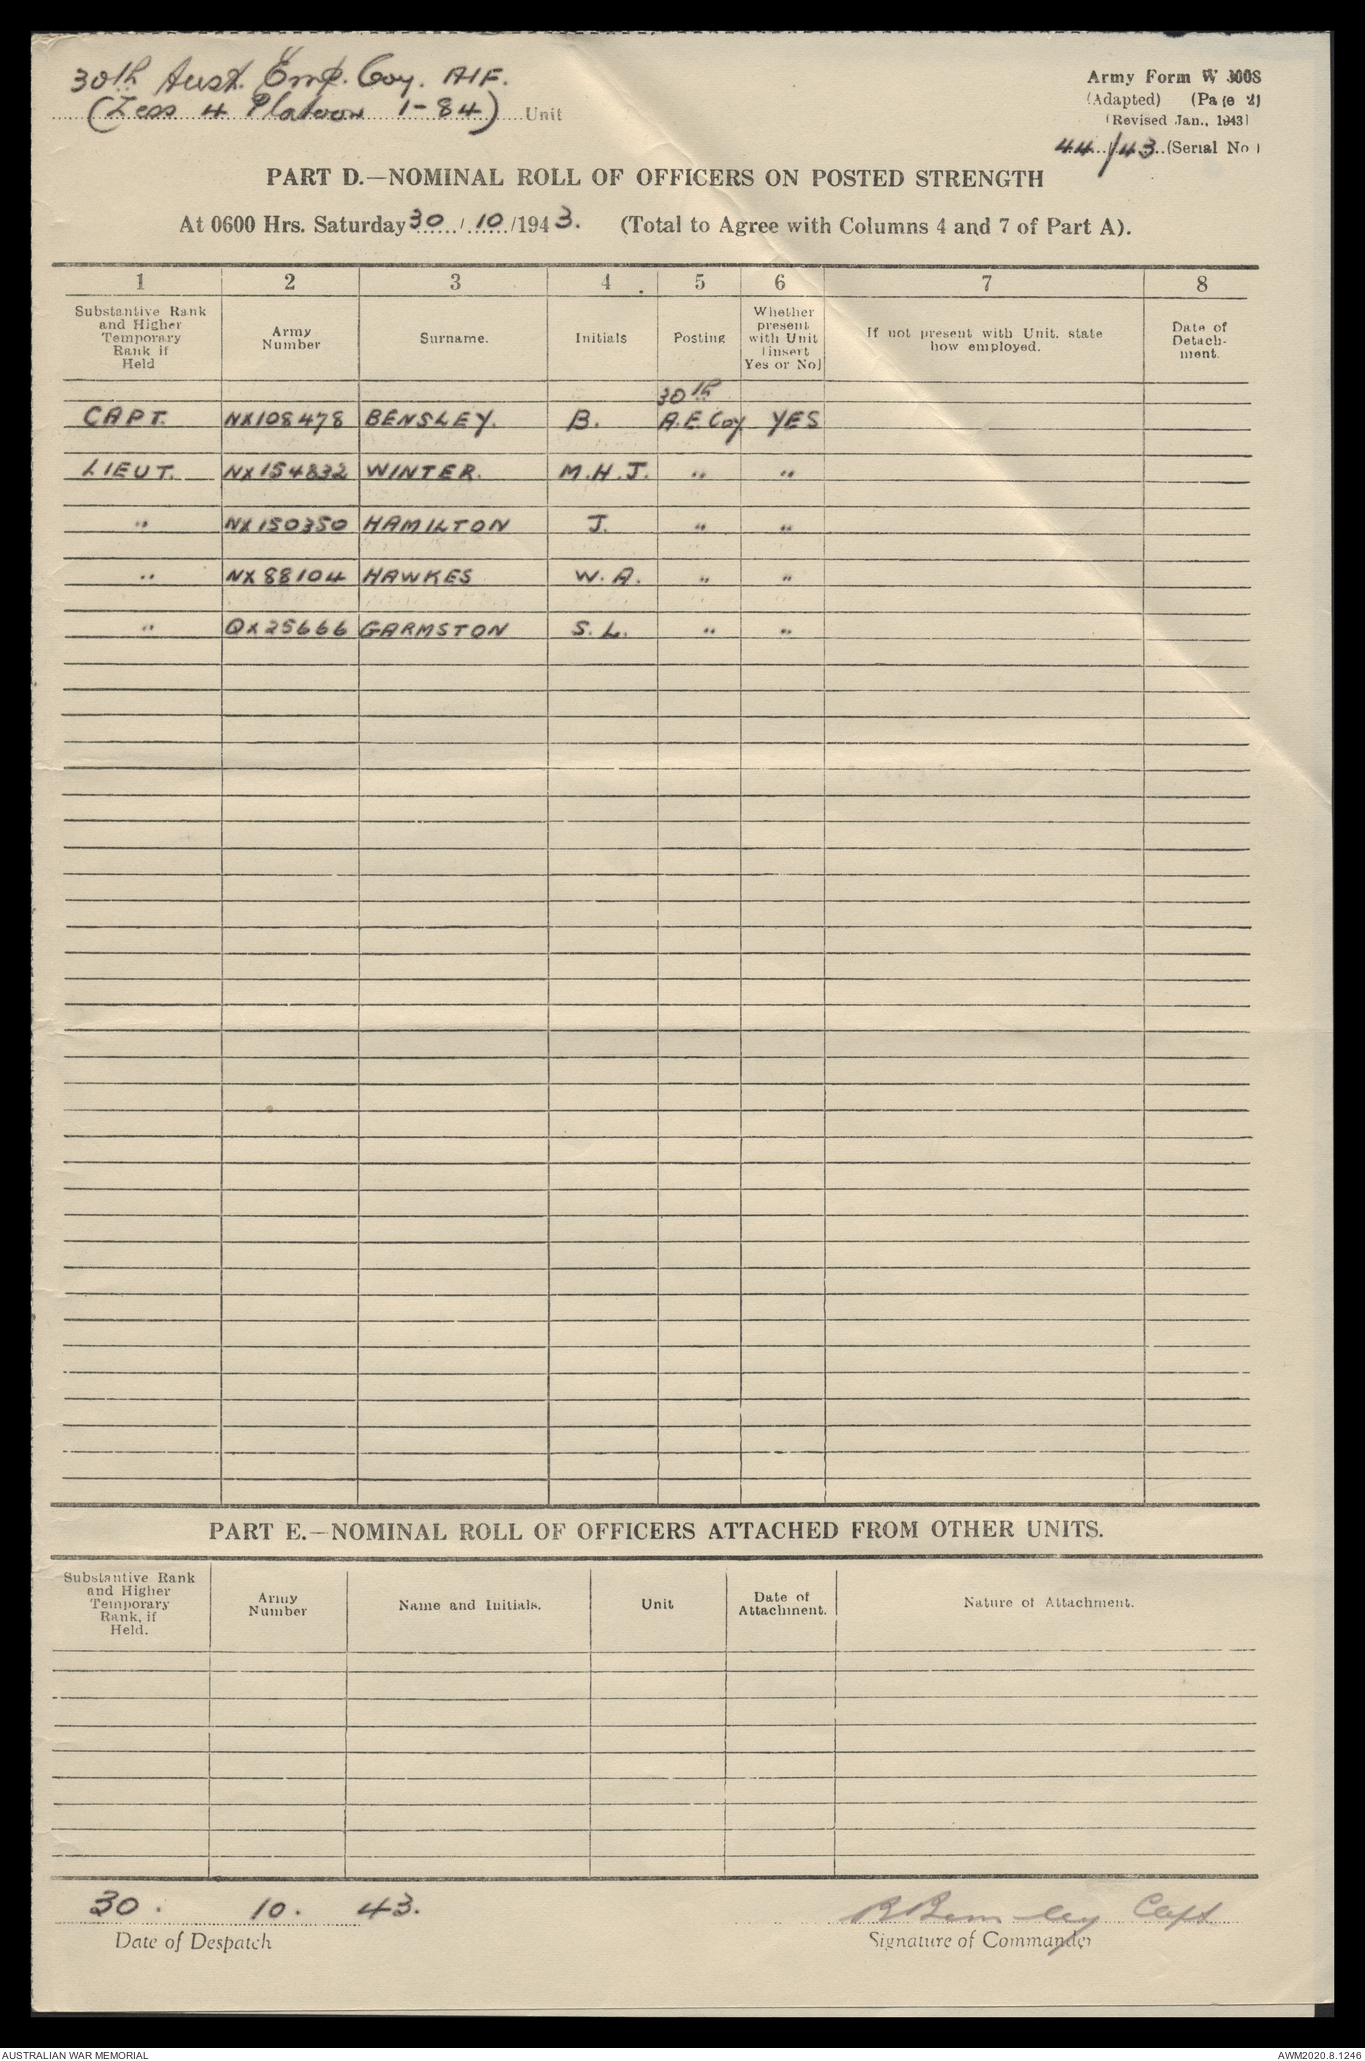 30th Aust. Emp. Coy. AIF.
(Less 4 Platoon 1-84) Unit
Army Form W 3008
(Adapted) (Page 2)
(Revised Jan., 1943)
44/43 (Serial No.)
PART D.—NOMINAL ROLL OF OFFICERS ON POSTED STRENGTH
At 0600 Hrs. Saturday 30 / 10 /1943. (Total to Agree with Columns 4 and 7 of Part A).
1 2 3 4 5 6 7 8
Substantive Rank and Higher Temporary Rank if Held
Army Number
Surname.
Initials
Posting
Whether present with Unit (insert Yes or No)
If not present with Unit. state how employed.
Date of Detachment.
30th
CAPT. NX108478 BENSLEY. B. A.E.Coy YES
LIEUT. NX154832 WINTER. M.H.J. " "
" NX150350 HAMILTON J. " "
" NX88104 HAWKES W.A. " "
" QX25666 GARMSTON S.L. " "
PART E.—NOMINAL ROLL OF OFFICERS ATTACHED FROM OTHER UNITS.
Substantive Rank and Higher Temporary Rank, if Held.
Army Number
Name and Initials.
Unit
Date of Attachment.
Nature of Attachment.
30. 10. 43. B Bensley Capt
Date of Despatch Signature of Commander
AUSTRALIAN WAR MEMORIAL AWM2020.8.1246